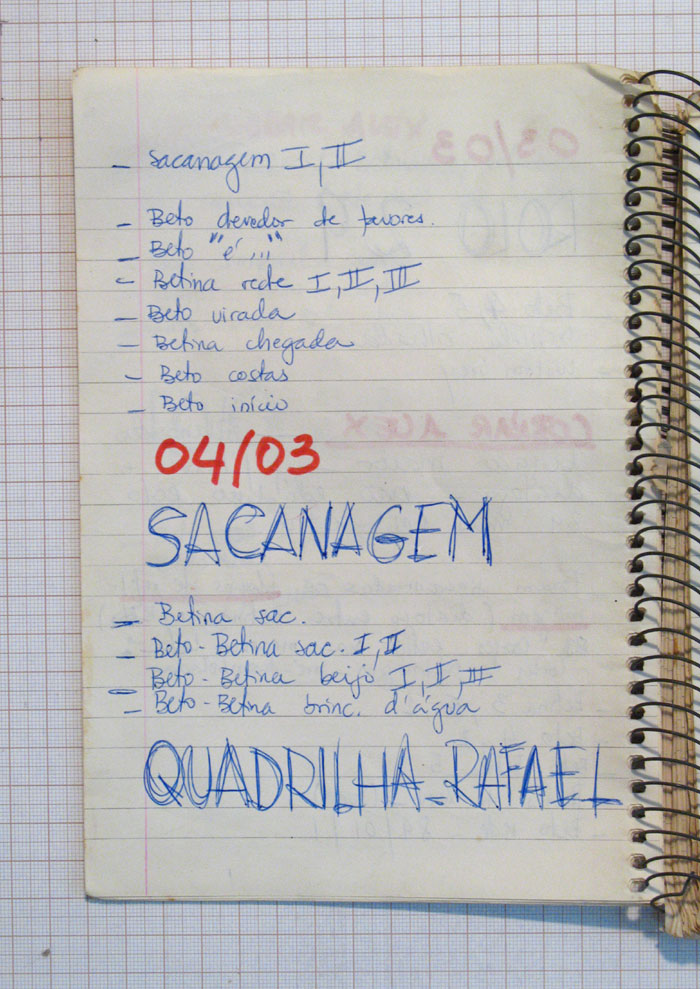 - Sacanagem I, II
- Beto devedor de favores.
- Beto "é..."
- Betina rede I, II, III
- Beto virada
- Betina chegada
- Beto costas
- Beto início
04/03
SACANAGEM
- Betina sac.
- Beto-Betina sac. I, II
- Beto-Betina beijo I, II, III
- Beto-Betina brinc. d'água
QUADRILHA-RAFAEL
03/03